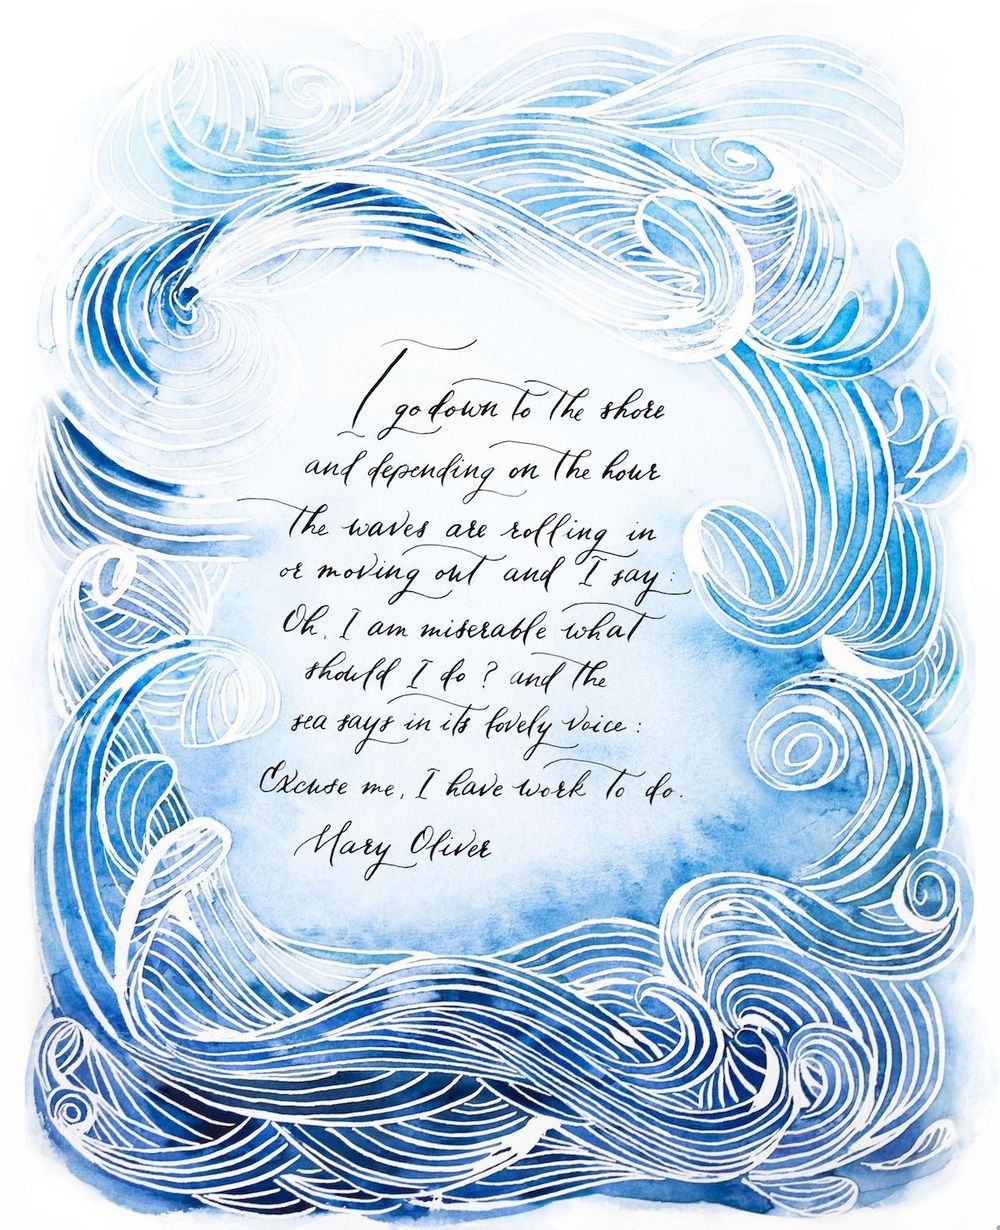 I go down to the shore
and depending on the hour
the waves are rolling in
or moving out and I say:
Oh, I am miserable what
should I do? and the
sea says in its lovely voice:
Excuse me, I have work to do.
Mary Oliver